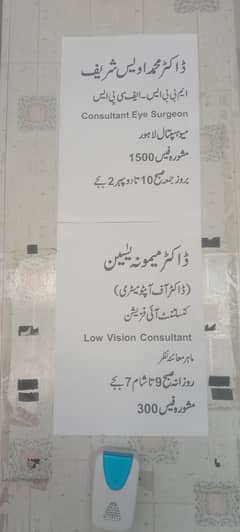 ڈاکٹر محمد اویس شریف
ایم بی بی ایس۔ ایف سی پی ایس
Consultant Eye Surgeon
میو ہسپتال لاہور
مشورہ فیس 1500
بروز جمعہ صبح 10 تا دوپہر 2 بجے
ڈاکٹر میمونہ یٰسین
(ڈاکٹر آف آپٹومیٹری)
کنسلٹنٹ آئی فزیشن
Low Vision Consultant
ماہر معائنہ نظر
روزانہ صبح 9 تا شام 7 بجے
مشورہ فیس 300